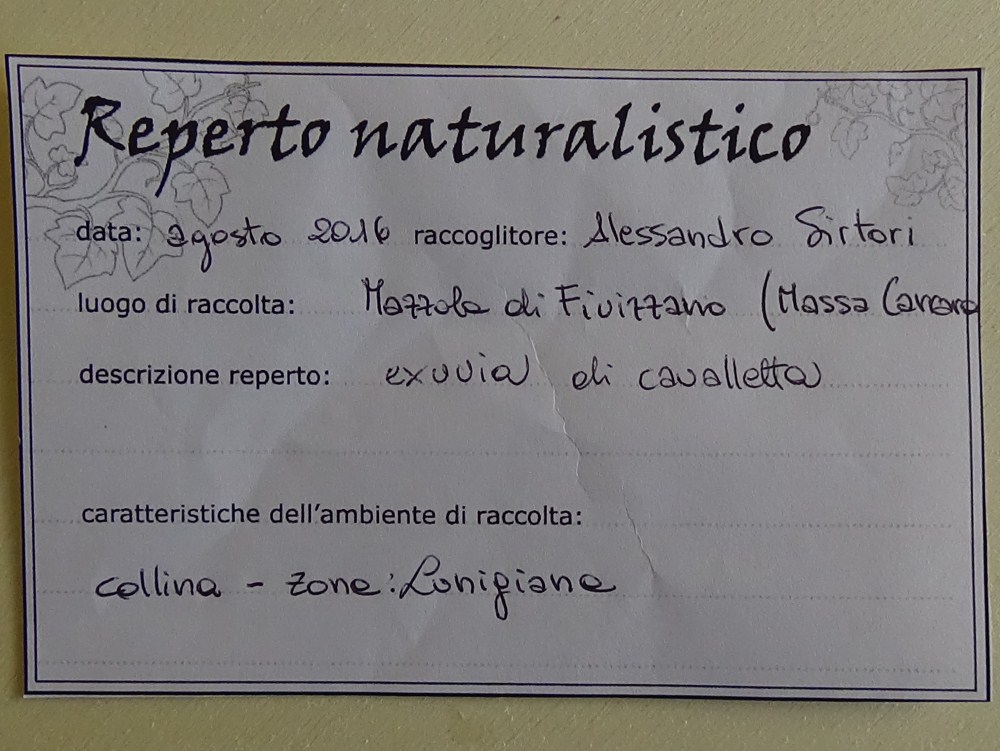 Reperto naturalistico
data: agosto 2016 raccoglitore: Alessandro Sirtori
luogo di raccolta: Mazzola di Fivizzano (Massa Carrara
descrizione reperto: exuvia di cavalletta
caratteristiche dell'ambiente di raccolta:
collina - zona: Lunigiana